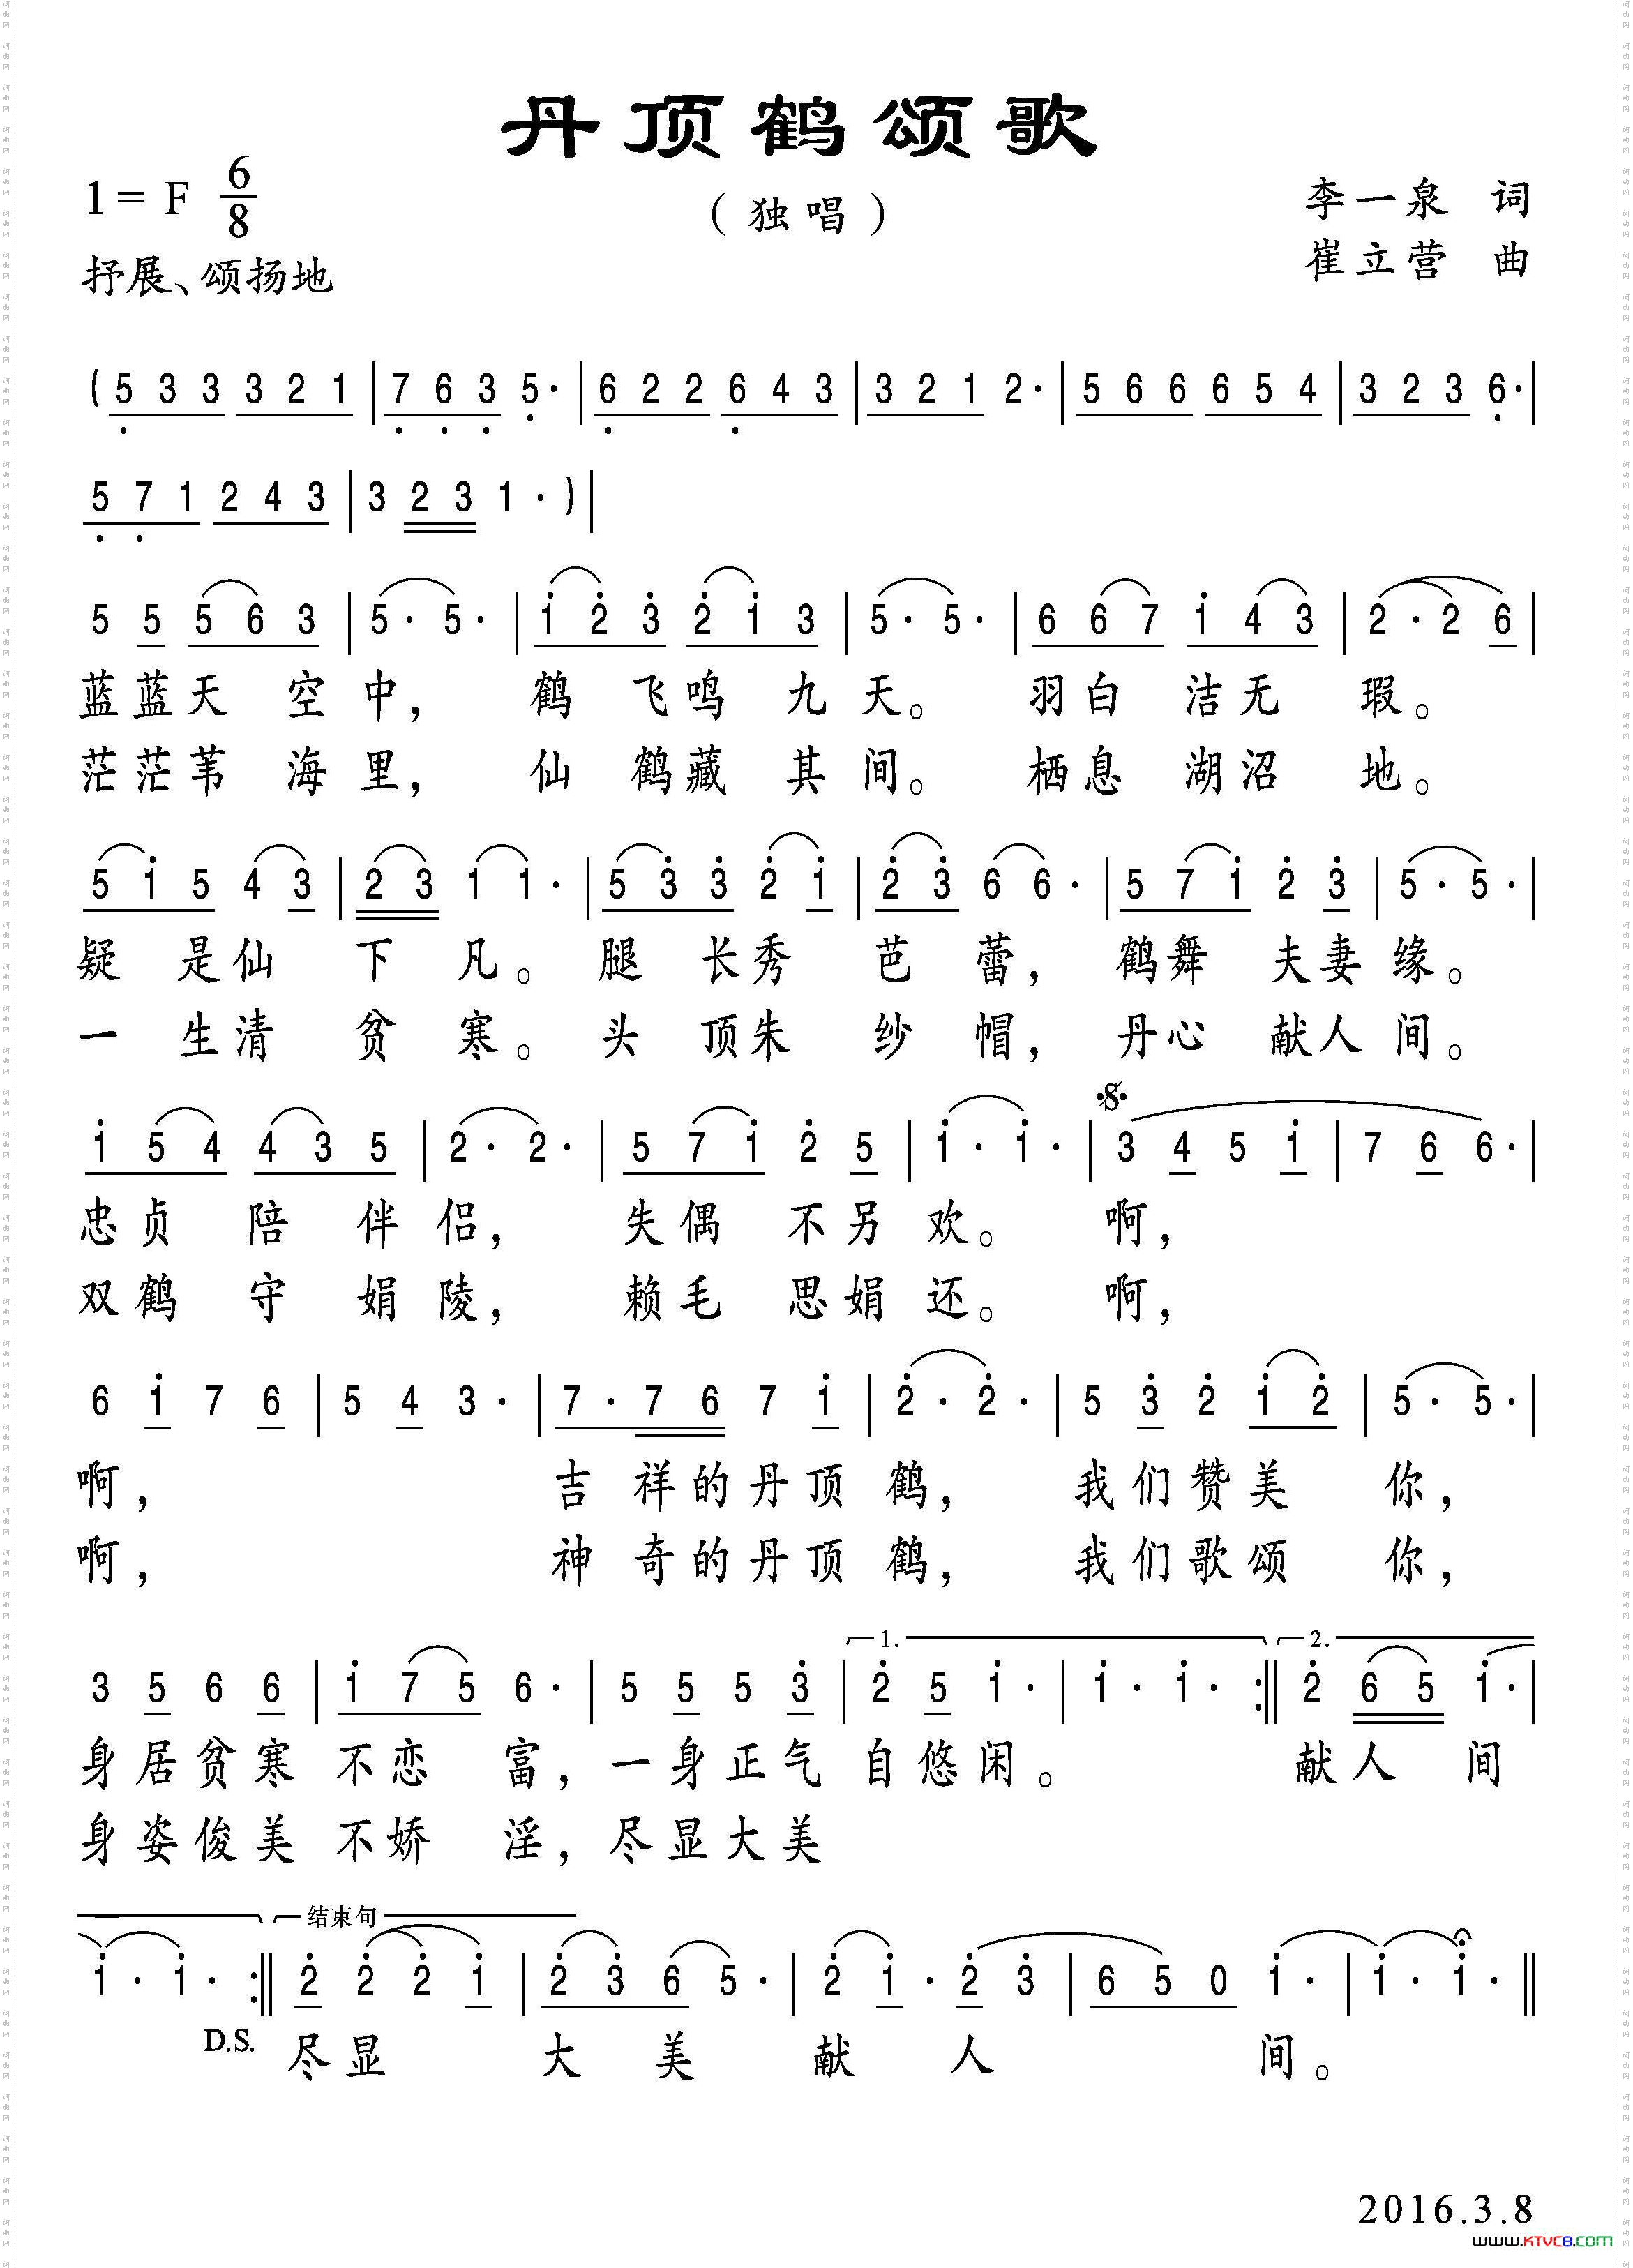 丹顶鹤颂歌
1= F 6/8
（独唱）
李一泉 词
抒展、颂扬地
崔立营 曲
( 5 3 3 3 2 1 | 7 6 3 5· | 6 2 2 6 4 3 | 3 2 1 2· | 5 6 6 6 5 4 | 3 2 3 6· |
5 7 1 2 4 3 | 3 2 3 1· ) |
5 5 5 6 3 | 5· 5· | 1 2 3 2 1 3 | 5· 5· | 6 6 7 1 4 3 | 2· 2 6 |
蓝蓝天 空中， 鹤 飞鸣 九天。 羽白 洁无 瑕。
茫茫苇 海里， 仙 鹤藏 其间。 栖息 湖沼 地。
5 1 5 4 3 | 2 3 1 1· | 5 3 3 2 1 | 2 3 6 6· | 5 7 1 2 3 | 5· 5· |
疑 是仙 下 凡。 腿 长秀 芭 蕾， 鹤舞 夫妻缘。
一 生清 贫 寒。 头 顶朱 纱 帽， 丹心 献人间。
1 5 4 4 3 5 | 2· 2· | 5 7 1 2 5 | 1· 1· | 3 4 5 1 | 7 6 6· |
忠贞 陪 伴侣， 失偶 不另欢。 啊，
双鹤 守 娟陵， 赖毛 思娟还。 啊，
6 1 7 6 | 5 4 3· | 7· 7 6 7 1 | 2· 2· | 5 3 2 1 2 | 5· 5· |
啊， 吉 祥的丹顶鹤， 我们赞美 你，
啊， 神 奇的丹顶鹤， 我们歌颂 你，
1. 2.
3 5 6 6 | 1 7 5 6· | 5 5 5 3 | 2 5 1· | 1· 1· :|| 2 6 5 1· |
身居贫寒 不恋 富，一身正气 自悠闲。 献人 间
身姿俊美 不娇 淫，尽显大美
结束句
1· 1· :|| 2 2 2 1 | 2 3 6 5· | 2 1· 2 3 | 6 5 0 1· | 1· 1· ||
D.S. 尽显 大 美 献 人 间。
2016.3.8
www.KTVC8.com